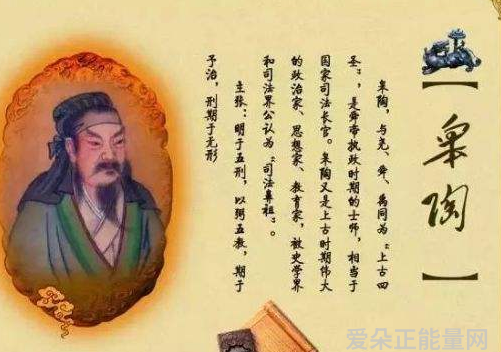 【皋陶】
皋陶，与尧、舜、禹同为“上古四
圣”，是舜帝执政时期的士师，相当于
国家司法长官。皋陶又是上古时期伟大
的政治家、思想家、教育家，被史学界
和司法界公认为“司法鼻祖”。
主张：明于五刑，以弼五教，期于
予治，刑期于无形
爱朵正能量网